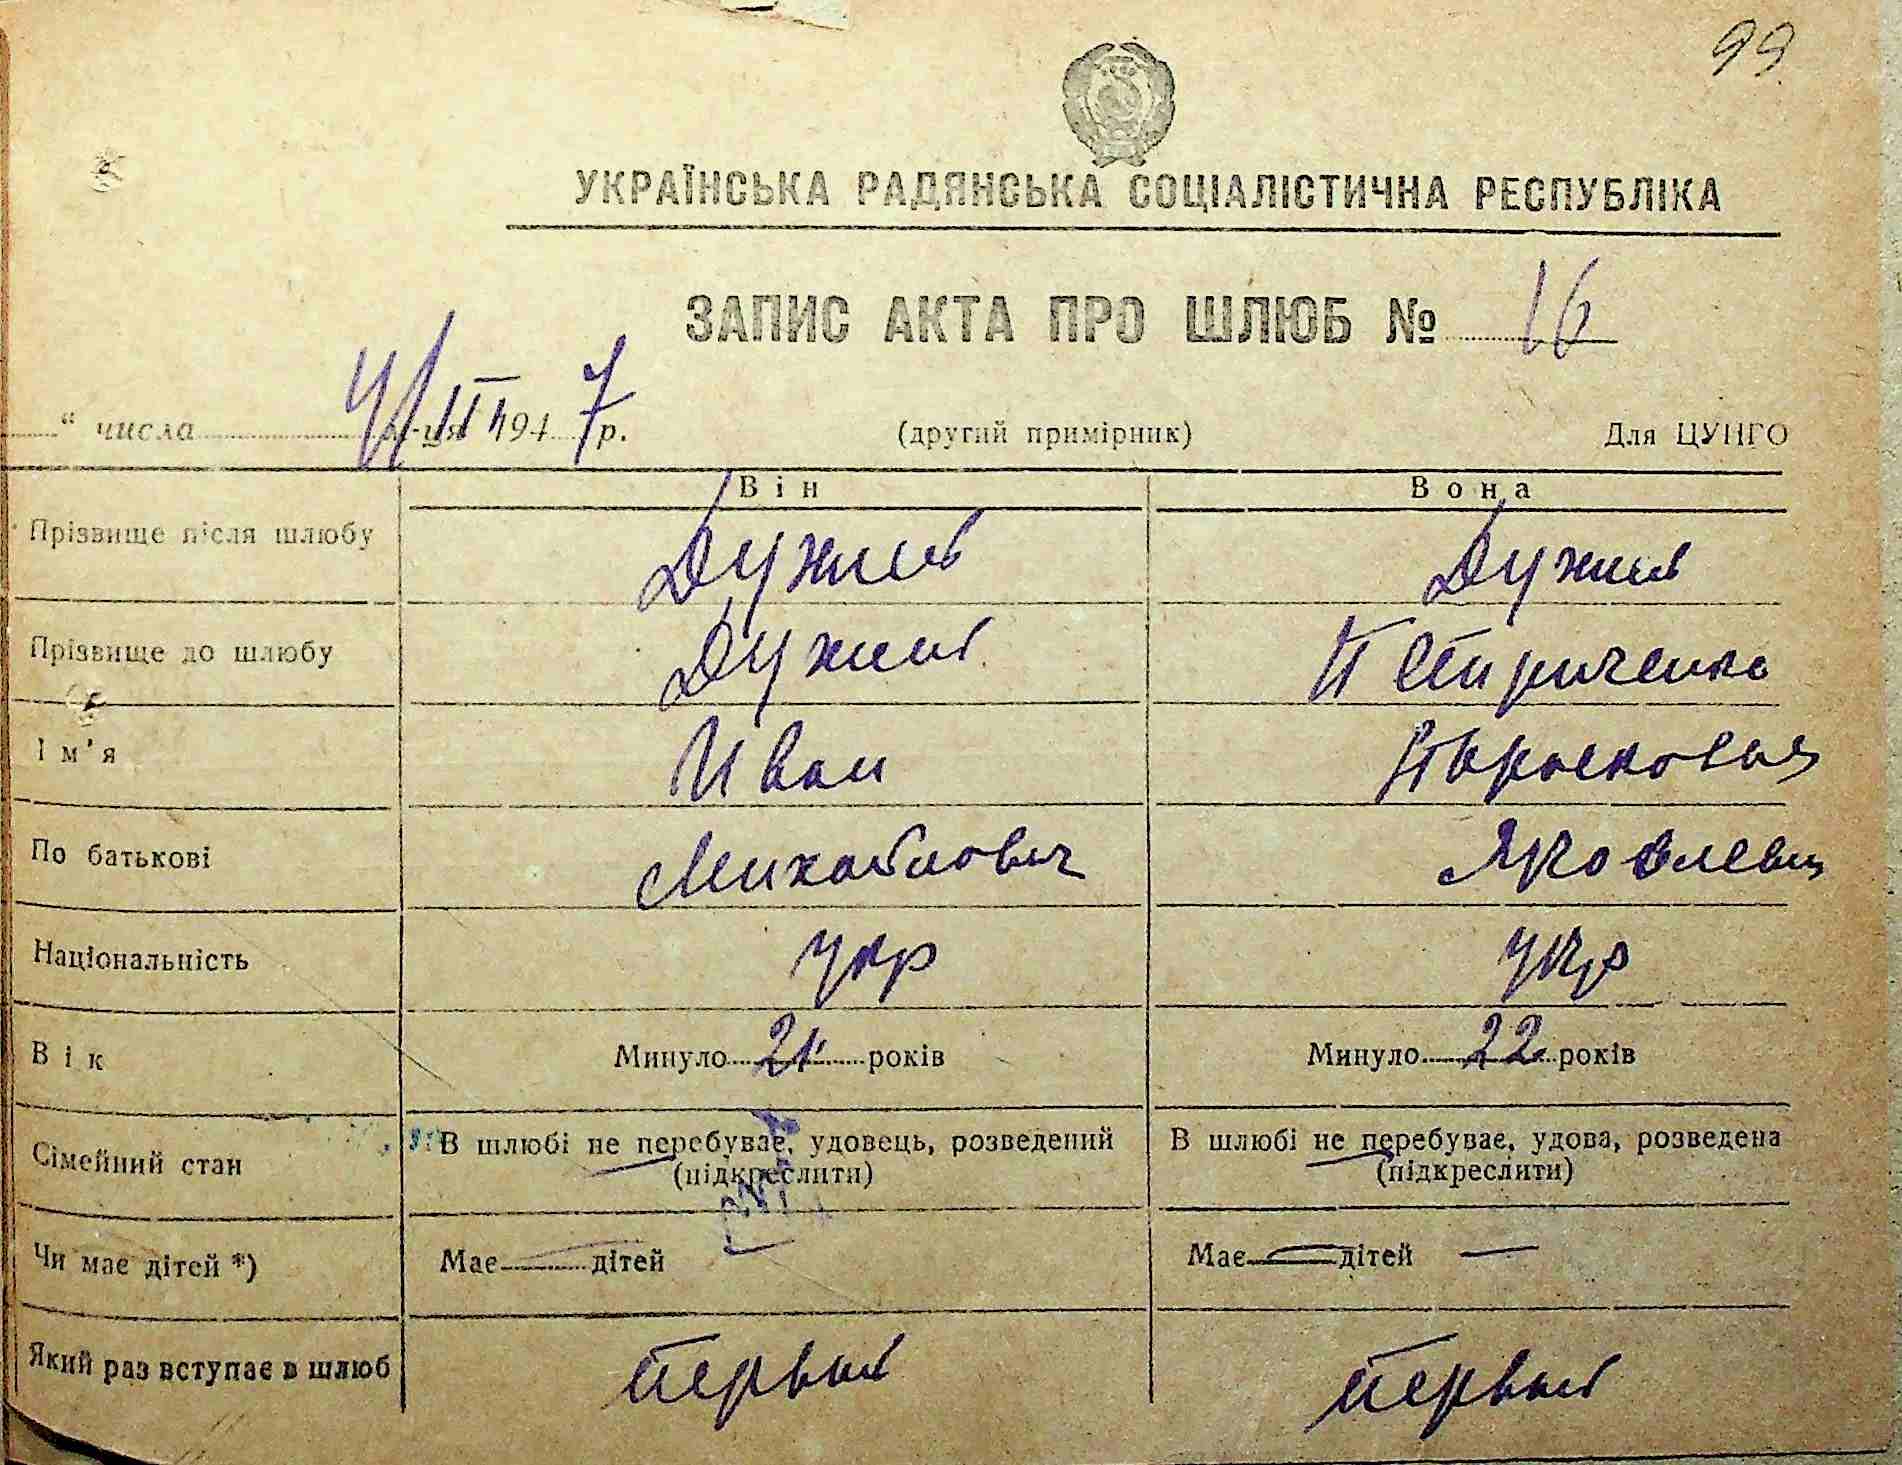 99
УКРАЇНСЬКА РАДЯНСЬКА СОЦІАЛІСТИЧНА РЕСПУБЛІКА
ЗАПИС АКТА ПРО ШЛЮБ № 16
“ числа м-ця 194 7 р. (другий примірник) Для ЦУНГО
Він Вона
Прізвище після шлюбу
Прізвище до шлюбу Петриченко
Ім'я Иван
По батькові Михайлович Яковлевна
Національність укр укр
Вік Минуло 21 років Минуло 22 років
Сімейний стан В шлюбі не перебуває, удовець, розведений В шлюбі не перебуває, удова, розведена
(підкреслити) (підкреслити)
Чи має дітей *) Має — дітей Має — дітей —
Який раз вступає в шлюб первый первый